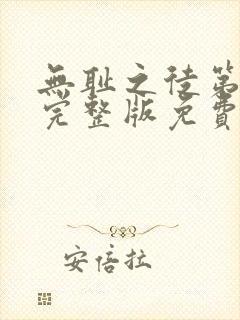 無耻之徒第
完整版免費
安倍拉